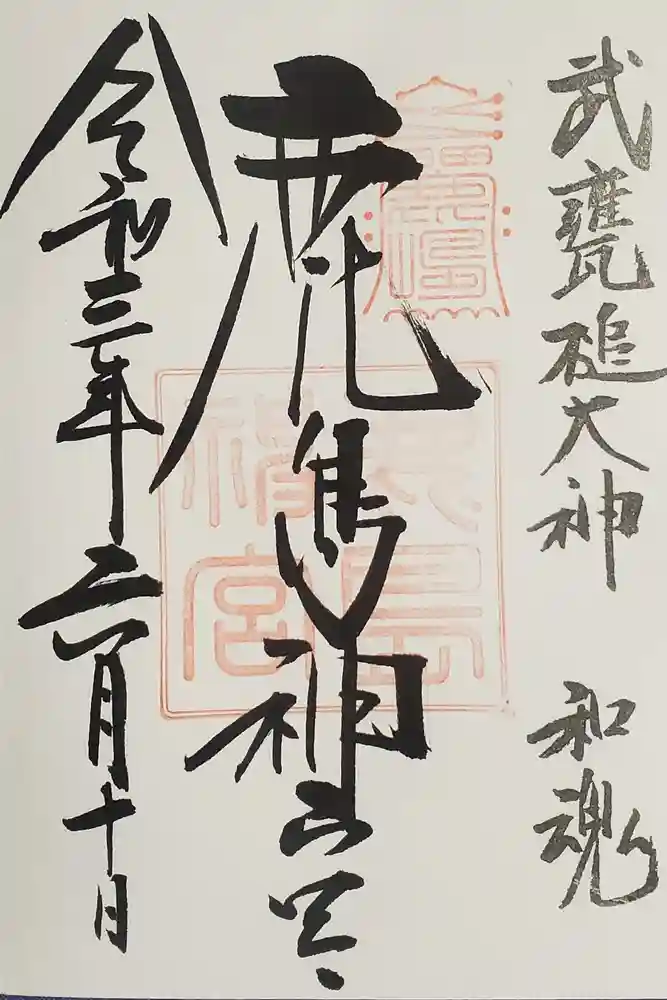 武甕槌大神 和魂
鹿島神宮
令和三年二月十日
鹿島
神宮